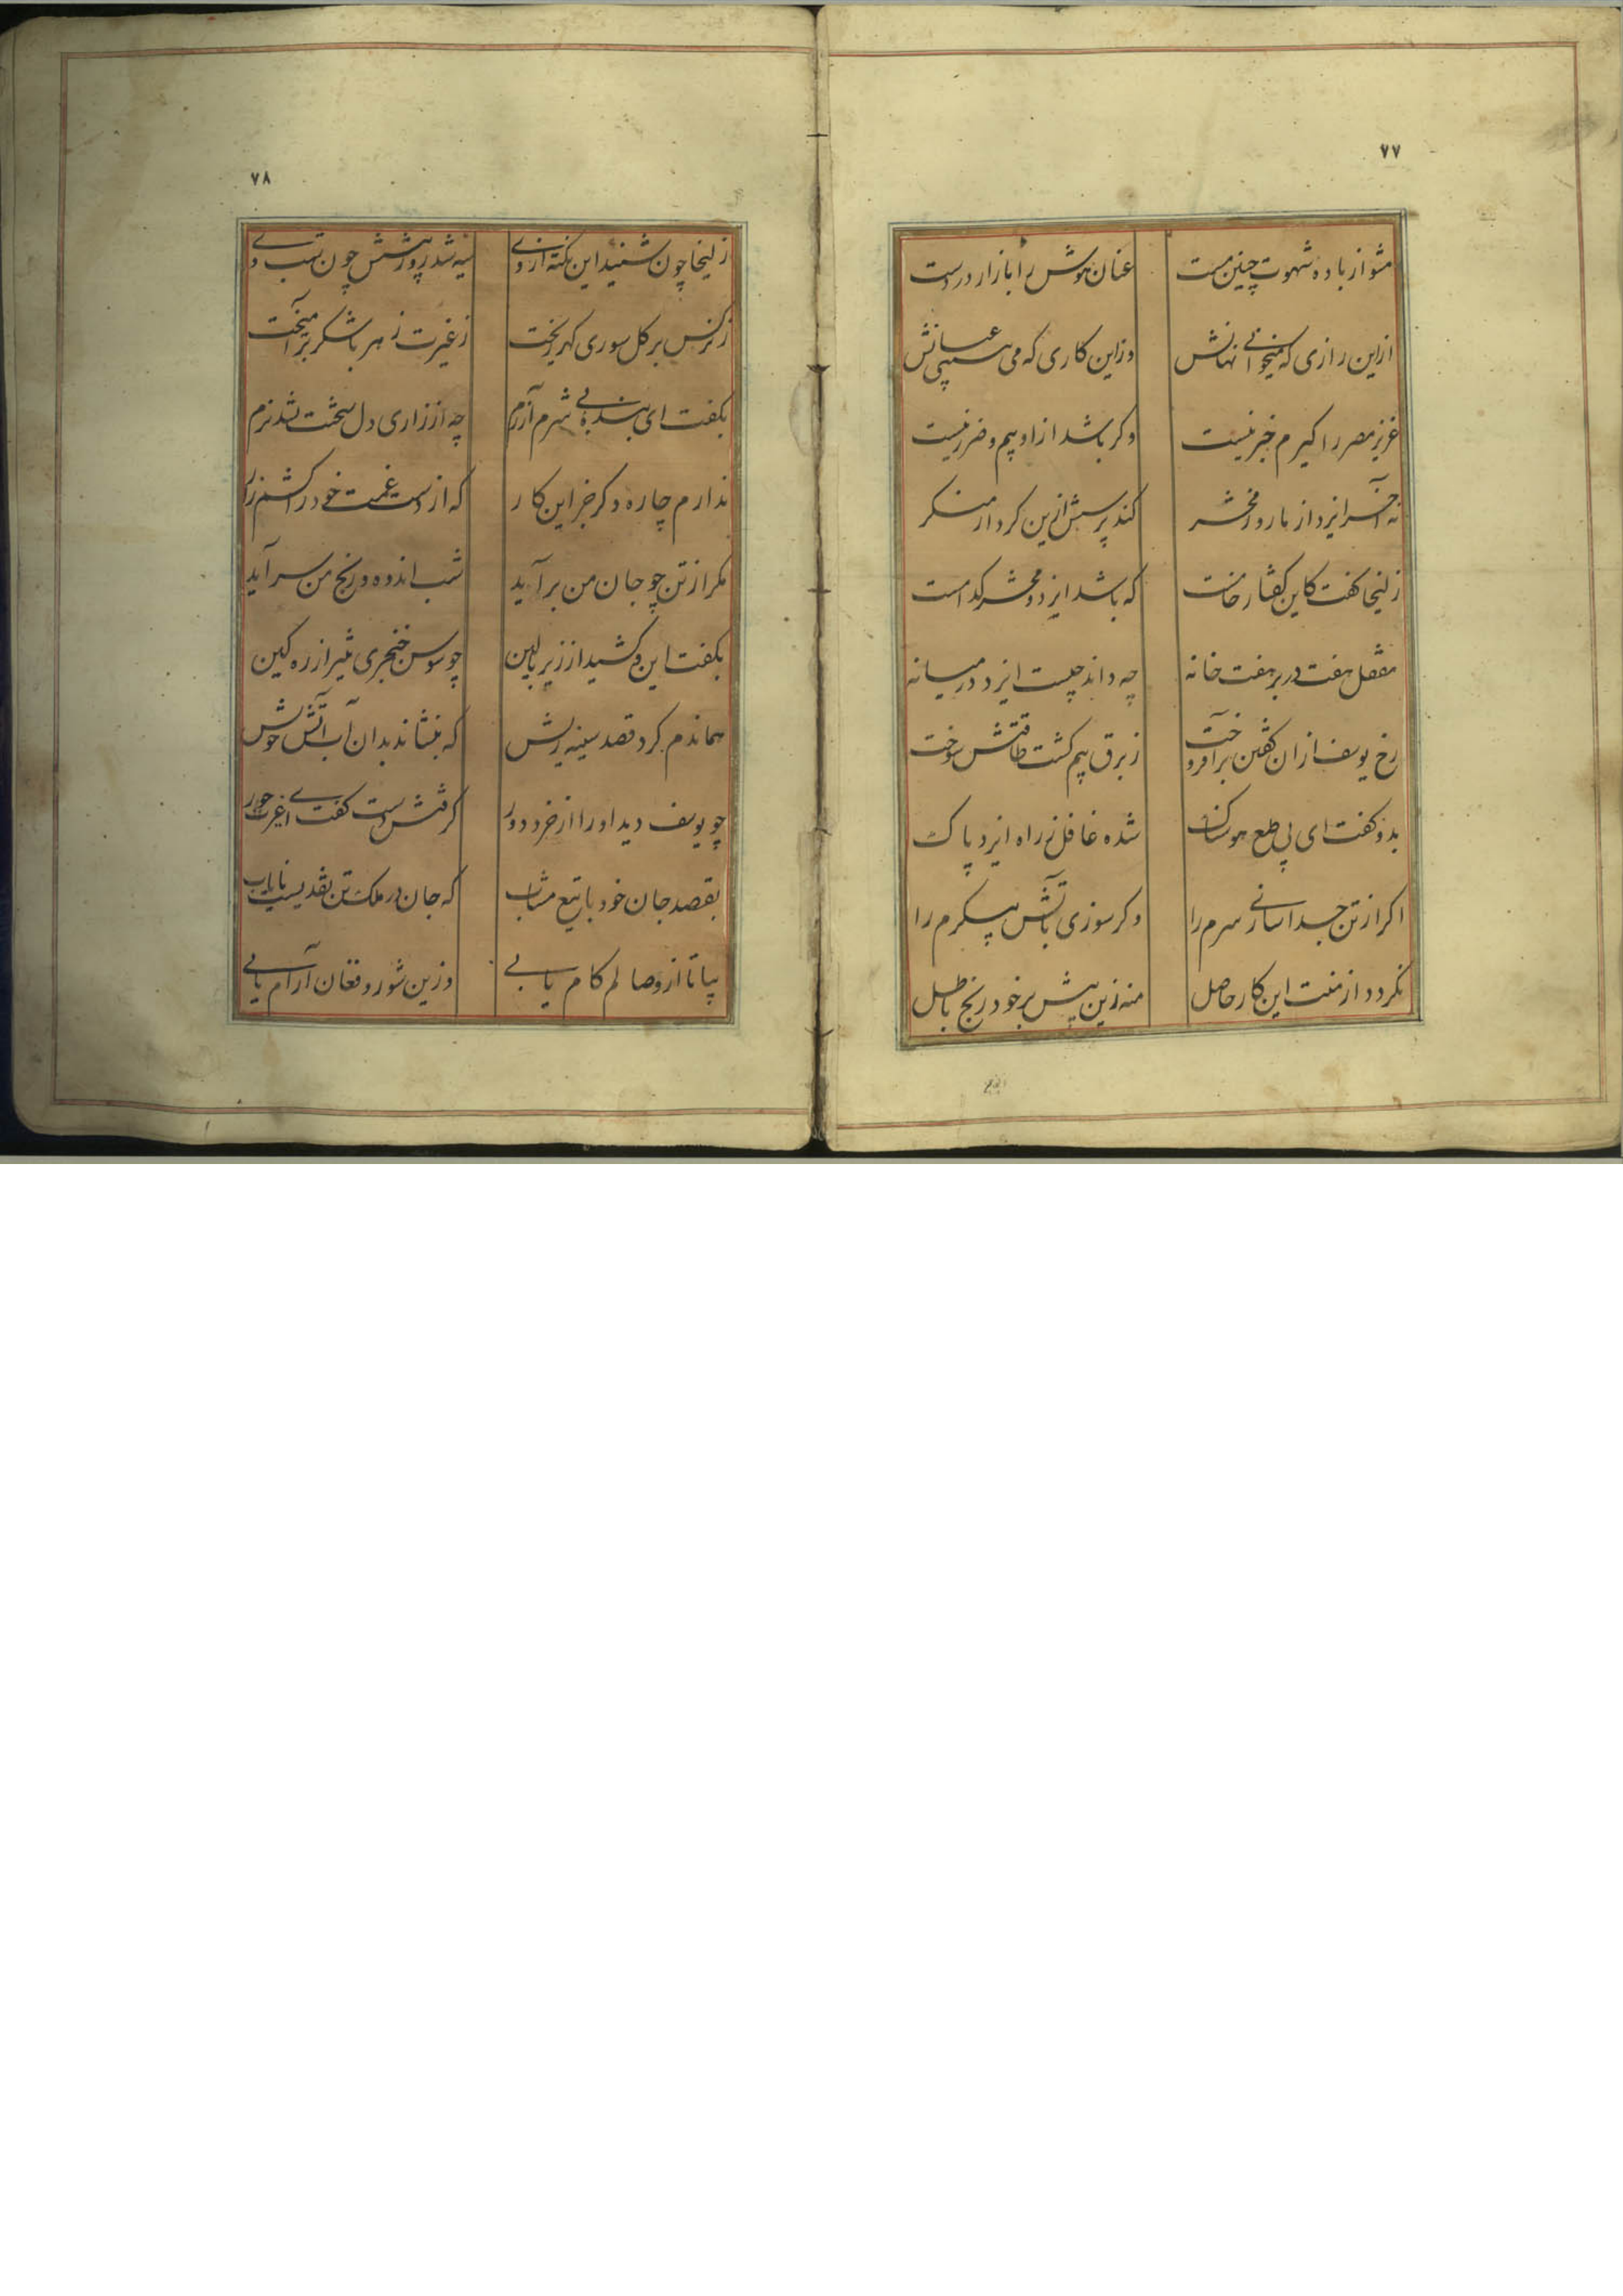 ۷۷
مشو از باده شهوت چنین مست عنان هوش را باز ار در دست
ازین رازی که میخوانی نهانش وزاین کاری که می پیچی عنانش
عزیز مصر را گیرم خبر نیست وکر باشد از او بیم و ضرر نیست
نه آخر ایزد از ما روز محشر کند پرسش ازین کردار منکر
زلیخا گفت کاین گفتار خامست که باشد ایزد و محشر کدامست
مقفل هفت در بر هفت خانه چه داند چیست ایزد در میانه
رخ یوسف ازان گفتن برافروخت ز برق بیم گشت طاقتش سوخت
بدو گفت ای پی طمع هوسناک شده غافل ز راه ایزد پاک
اکر از تن جدا سازی سرم را وکر سوزی بآتش پیکرم را
نکردد از منت این کار حاصل منه زین بیش بر خود رنج باطل
۷۸
زلیخا چون شنید این نکته از وی سیه شد روز رویش چون شب دی
ز نرکس بر کل سوری کهر ریخت ز غیرت زهر با شکر برآمیخت
بکفت ای بنده بی شرم و آزرم چه از زاری دل سختت نشد نرم
ندارم چاره دکر جز این کار که از دست غمت خود را کشم زار
مکر از تن چو جان من برآید شب اندوه و رنج من سرآید
بکفت این و کشید از زیر بالین چو سوسن خنجری تیز از ره کین
هماندم کرد قصد سینه ریش که بنشاند بدان آب آتش خویش
چو یوسف دید او را از خرد دور کرفتش دست کفت ای غیرت حور
بقصد جان خود با تیغ مشتاب که جان در ملک تن نقدیست نایاب
بیا تا از وصالم کام یابی وزین شور و فغان آرام یابی